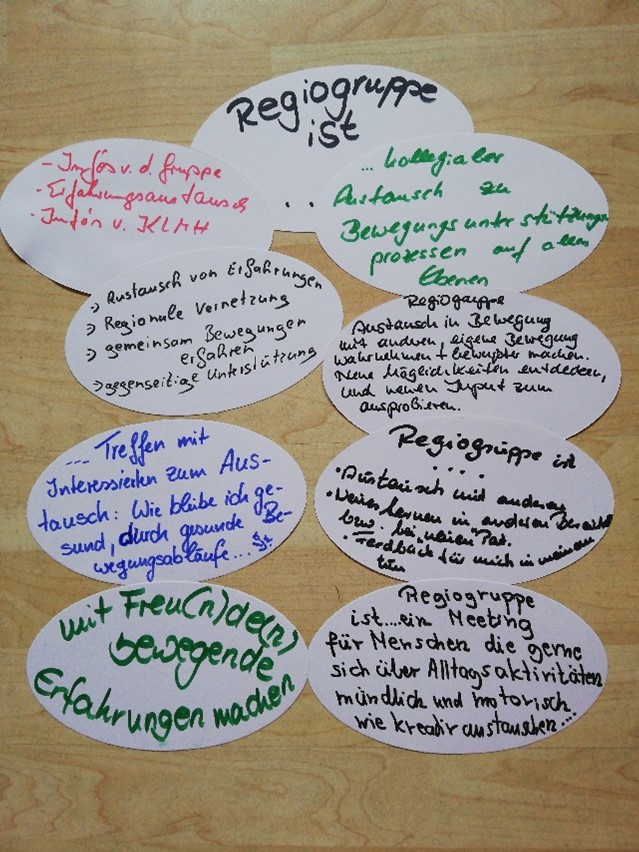 Regiogruppe
ist
...
- Infos v. d. Gruppe
- Erfahrungsaustausch
- Infos v. KLMH
... kollegialer
Austausch zu
Bewegungsunterstützungs
prozessen auf allen
Ebenen
> Austausch von Erfahrungen
> Regionale Vernetzung
> gemeinsam Bewegungen
erfahren
> gegenseitige Unterstützung
Regiogruppe
Austausch in Bewegung
mit anderen, eigene Bewegung
wahrnehmen + bewusster machen.
Neue Möglichkeiten entdecken,
und neuen Input zum
ausprobieren.
--- Treffen mit
Interessierten zum Aus-
tausch: Wie bleibe ich ge-
sund, durch gesunde Be-
wegungsabläufe...
Regiogruppe ist
....
• Austausch mit anderen
• Neues lernen in anderen Bereichen
bzw. bei neuen Pat.
• Feedback für mich in meinem
tun
mit Freu(n)de(n)
bewegende
Erfahrungen machen
Regiogruppe
ist...ein Meeting
für Menschen die gerne
sich über Alltagsaktivitäten
mündlich und motorisch
wie kreativ austauschen...